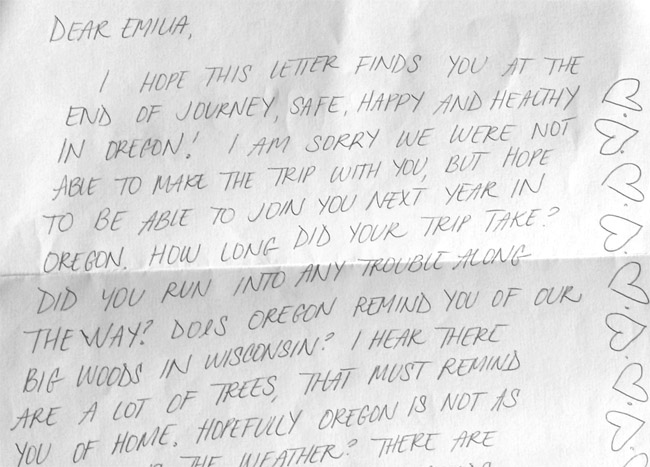 DEAR EMILIA,
I HOPE THIS LETTER FINDS YOU AT THE
END OF JOURNEY, SAFE, HAPPY AND HEALTHY
IN OREGON! I AM SORRY WE WERE NOT
ABLE TO MAKE THE TRIP WITH YOU, BUT HOPE
TO BE ABLE TO JOIN YOU NEXT YEAR IN
OREGON. HOW LONG DID YOUR TRIP TAKE?
DID YOU RUN INTO ANY TROUBLE ALONG
THE WAY? DOES OREGON REMIND YOU OF OUR
BIG WOODS IN WISCONSIN? I HEAR THERE
ARE A LOT OF TREES, THAT MUST REMIND
YOU OF HOME. HOPEFULLY OREGON IS NOT AS
THE WEATHER? THERE ARE